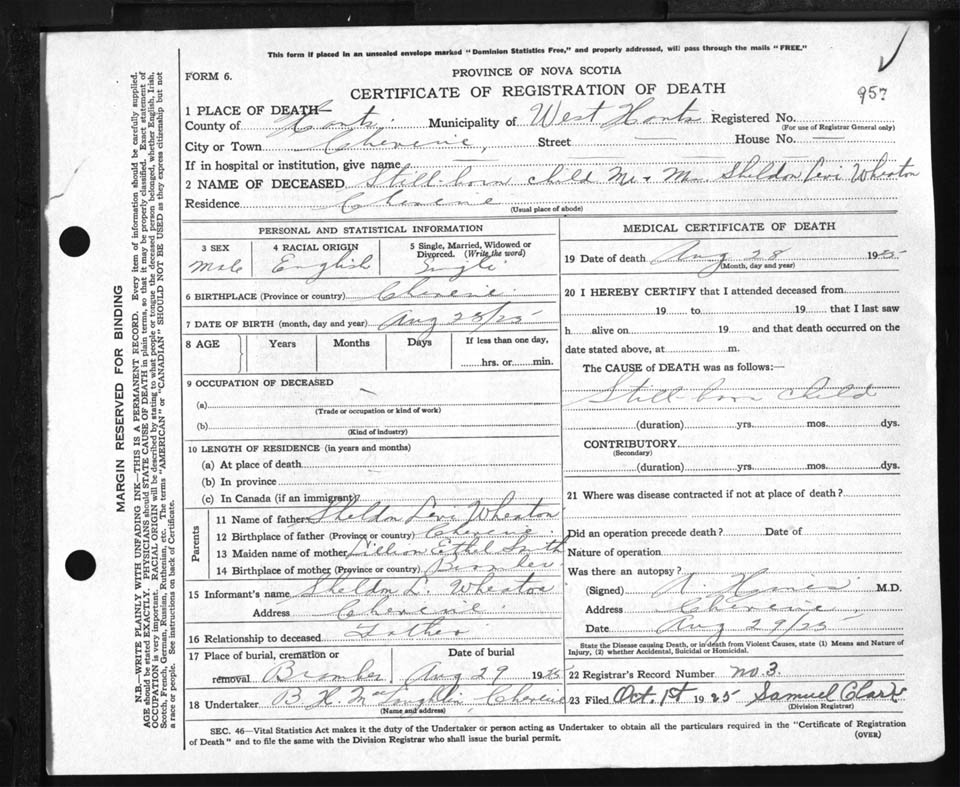 This form if placed in an unsealed envelope marked "Dominion Statistics Free," and properly addressed, will pass through the mails "FREE."
FORM 6.
PROVINCE OF NOVA SCOTIA
CERTIFICATE OF REGISTRATION OF DEATH
957
1 PLACE OF DEATH—
County of Hants Municipality of West Hants Registered No.
(For use of Registrar General only)
City or Town Cheverie, Street — House No. —
If in hospital or institution, give name —
2 NAME OF DECEASED Still-born child Mr & Mrs Sheldon Levi Wheaton
Residence Cheverie
(Usual place of abode)
PERSONAL AND STATISTICAL INFORMATION
3 SEX 4 RACIAL ORIGIN 5 Single, Married, Widowed or Divorced. (Write the word)
Male English Single
6 BIRTHPLACE (Province or country) Cheverie
7 DATE OF BIRTH (month, day and year) Aug 28/25
8 AGE Years Months Days If less than one day,
hrs. or min.
9 OCCUPATION OF DECEASED —
(a)
(Trade or occupation or kind of work)
(b)
(Kind of industry)
10 LENGTH OF RESIDENCE (in years and months)
(a) At place of death
(b) In province
(c) In Canada (if an immigrant)
Parents
11 Name of father Sheldon Levi Wheaton
12 Birthplace of father (Province or country) Cheverie
13 Maiden name of mother Lillian Ethel Smith
14 Birthplace of mother (Province or country)
15 Informant's name Sheldon L. Wheaton
Address Cheverie
16 Relationship to deceased Father
17 Place of burial, cremation or removal Date of burial
Aug 29 1925
18 Undertaker B H Cheverie
(Name and address)
MEDICAL CERTIFICATE OF DEATH
19 Date of death Aug 28 1925
(Month, day and year)
20 I HEREBY CERTIFY that I attended deceased from
19 to 19 that I last saw
h alive on 19 and that death occurred on the
date stated above, at m.
The CAUSE of DEATH was as follows:—
Still-born Child
(duration) yrs. mos. dys.
CONTRIBUTORY
(Secondary)
(duration) yrs. mos. dys.
21 Where was disease contracted if not at place of death?
Did an operation precede death? Date of
Nature of operation
Was there an autopsy?
(Signed) M.D.
Address Cheverie,
Date Aug 29/25
State the Disease causing Death, or in death from Violent Causes, state (1) Means and Nature of
Injury, (2) whether Accidental, Suicidal or Homicidal.
22 Registrar's Record Number no. 3.
23 Filed Oct. 1st 1925 Samuel Clark
(Division Registrar)
SEC. 46—Vital Statistics Act makes it the duty of the Undertaker or person acting as Undertaker to obtain all the particulars required in the "Certificate of Registration
of Death" and to file the same with the Division Registrar who shall issue the burial permit.
(OVER)
MARGIN RESERVED FOR BINDING
N.B.—WRITE PLAINLY WITH UNFADING INK—THIS IS A PERMANENT RECORD. Every item of information should be carefully supplied.
AGE should be stated EXACTLY. PHYSICIANS should STATE CAUSE OF DEATH in plain terms, so that it may be properly classified. Exact statement of
OCCUPATION is very important. RACIAL ORIGIN will be described by stating to what people or tongue the deceased person belonged, whether English, Irish,
Scotch, French, German, Russian, Ruthenian, etc. The terms "AMERICAN" or "CANADIAN" SHOULD NOT BE USED as they express citizenship but not
a race or people. See instructions on back of Certificate.